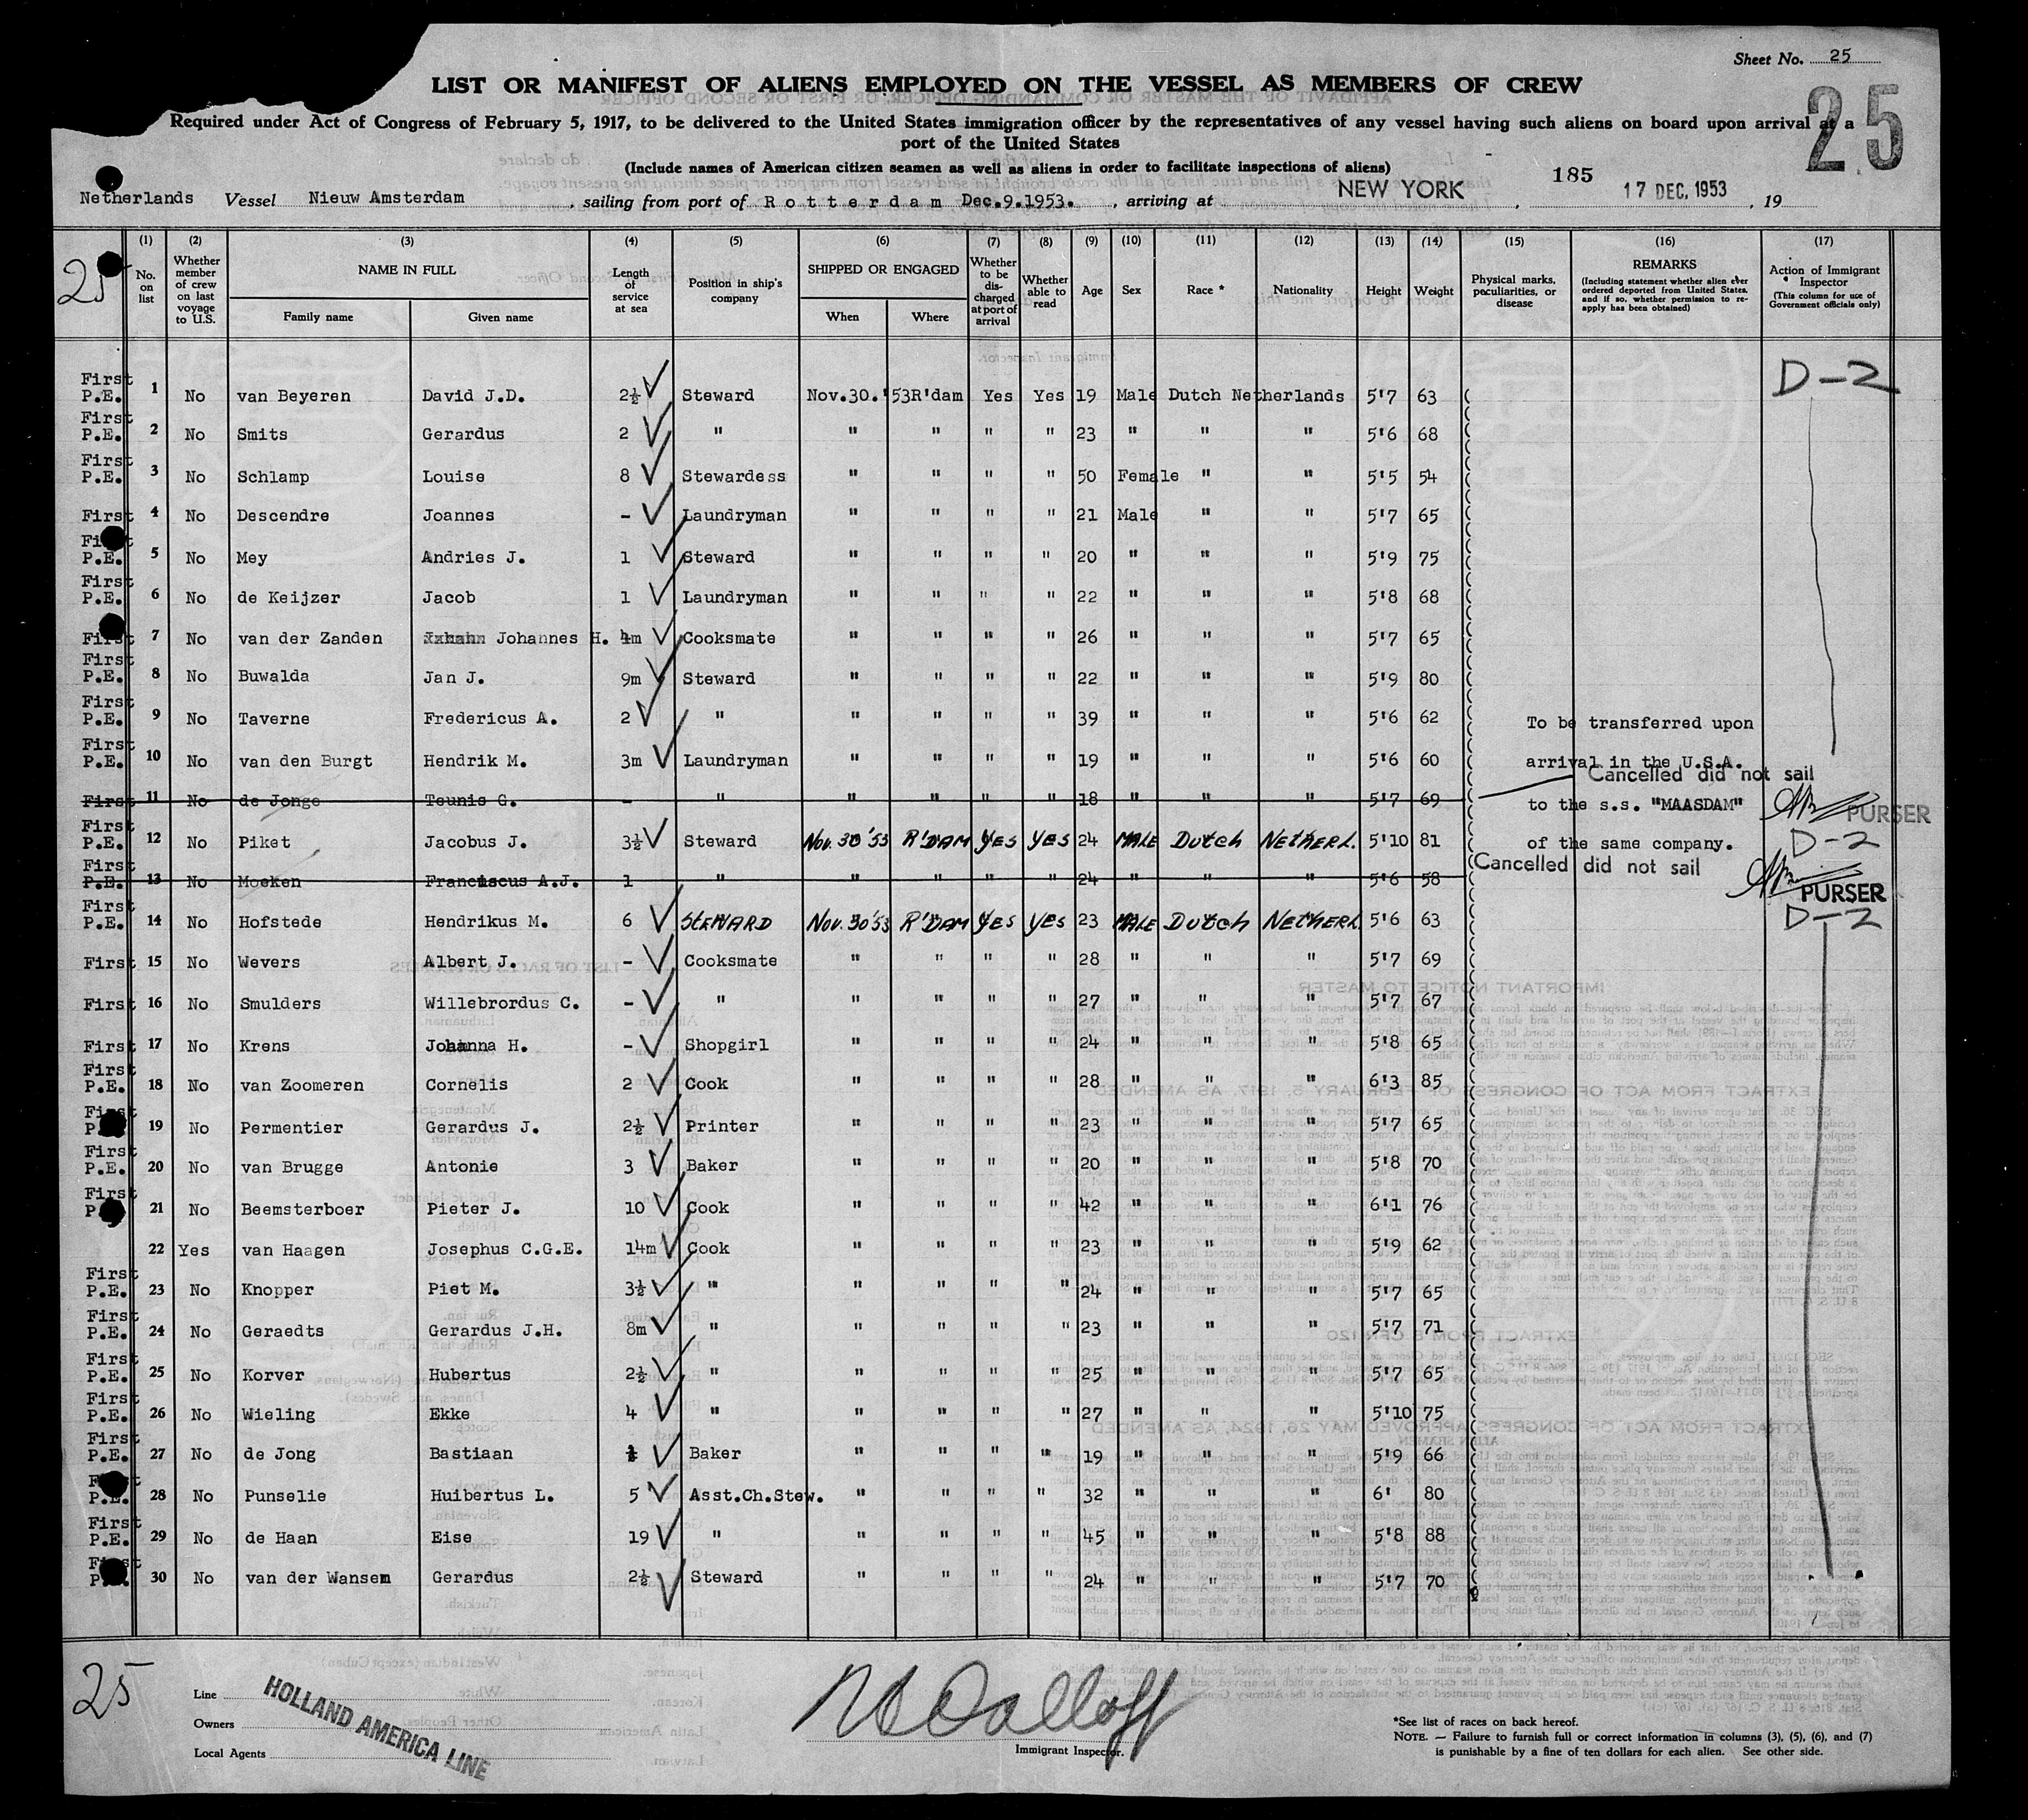 Sheet No. 25
LIST OR MANIFEST OF ALIENS EMPLOYED ON THE VESSEL AS MEMBERS OF CREW
25
Required under Act of Congress of February 5, 1917, to be delivered to the United States immigration officer by the representatives of any vessel having such aliens on board upon arrival at a
port of the United States
(Include names of American citizen seamen as well as aliens in order to facilitate inspections of aliens)
185
Netherlands Vessel Nieuw Amsterdam, sailing from port of Rotterdam Dec.9.1953., arriving at NEW YORK, 17 DEC, 1953, 19
25
(1) (2) (3) (4) (5) (6) (7) (8) (9) (10) (11) (12) (13) (14) (15) (16) (17)
No. on list
Whether member of crew on last voyage to U.S.
NAME IN FULL
Family name Given name
Length of service at sea
Position in ship's company
SHIPPED OR ENGAGED
When Where
Whether to be discharged at port of arrival
Whether able to read
Age
Sex
Race *
Nationality
Height
Weight
Physical marks, peculiarities, or disease
REMARKS
(Including statement whether alien ever ordered deported from United States, and if so, whether permission to reapply has been obtained)
Action of Immigrant Inspector
(This column for use of Government officials only)
D-2
First P.E. 1 No van Beyeren David J.D. 2½ Steward Nov.30.'53 R'dam Yes Yes 19 Male Dutch Netherlands 5'7 63
First P.E. 2 No Smits Gerardus 2 " " " " " 23 " " " 5'6 68
First P.E. 3 No Schlamp Louise 8 Stewardess " " " " 50 Female " " 5'5 54
First 4 No Descendre Joannes - Laundryman " " " " 21 Male " " 5'7 65
First P.E. 5 No Mey Andries J. 1 Steward " " " " 20 " " " 5'9 75
First P.E. 6 No de Keijzer Jacob 1 Laundryman " " " " 22 " " " 5'8 68
First 7 No van der Zanden Johannes H. 4m Cooksmate " " " " 26 " " " 5'7 65
First P.E. 8 No Buwalda Jan J. 9m Steward " " " " 22 " " " 5'9 80
First P.E. 9 No Taverne Fredericus A. 2 " " " " " 39 " " " 5'6 62
To be transferred upon
First P.E. 10 No van den Burgt Hendrik M. 3m Laundryman " " " " 19 " " " 5'6 60
arrival in the U.S.A.
Cancelled did not sail
First 11 No de Jonge Teunis G. - " " " " " 18 " " " 5'7 69
to the s.s. "MAASDAM"
PURSER
First P.E. 12 No Piket Jacobus J. 3½ Steward Nov. 30'53 R'DAM YES YES 24 MALE Dutch NETHERL. 5'10 81
of the same company.
D-2
Cancelled did not sail
First P.E. 13 No Moeken Franciscus A.J. 1 " " " " " 24 " " " 5'6 58
PURSER
First P.E. 14 No Hofstede Hendrikus M. 6 STEWARD Nov. 30'53 R'DAM YES YES 23 MALE Dutch NETHERL 5'6 63
D-2
First 15 No Wevers Albert J. - Cooksmate " " " " 28 " " " 5'7 69
First 16 No Smulders Willebrordus C. - " " " " " 27 " " " 5'7 67
First 17 No Krens Johanna H. - Shopgirl " " " " 24 " " " 5'8 65
First P.E. 18 No van Zoomeren Cornelis 2 Cook " " " " 28 " " " 6'3 85
First P. 19 No Permentier Gerardus J. 2½ Printer " " " " 23 " " " 5'7 65
First P.E. 20 No van Brugge Antonie 3 Baker " " " " 20 " " " 5'8 70
First P. 21 No Beemsterboer Pieter J. 10 Cook " " " " 42 " " " 6'1 76
22 Yes van Haagen Josephus C.G.E. 14m Cook " " " " 23 " " " 5'9 62
First P.E. 23 No Knopper Piet M. 3½ " " " " " 24 " " " 5'7 65
First P.E. 24 No Geraedts Gerardus J.H. 8m " " " " " 23 " " " 5'7 71
First P.E. 25 No Korver Hubertus 2½ " " " " " 25 " " " 5'7 65
First P.E. 26 No Wieling Ekke 4 " " " " " 27 " " " 5'10 75
First P.E. 27 No de Jong Bastiaan Baker " " " " 19 " " " 5'9 66
First P.E. 28 No Punselie Huibertus L. 5 Asst.Ch.Stew. " " " " 32 " " " 6' 80
First P.E. 29 No de Haan Eise 19 " " " " " 45 " " " 5'8 88
First P. 30 No van der Wansem Gerardus 2½ Steward " " " " 24 " " " 5'7 70
25
Line
Owners
Local Agents
HOLLAND AMERICA LINE
Immigrant Inspector.
*See list of races on back hereof.
NOTE. — Failure to furnish full or correct information in columns (3), (5), (6), and (7)
is punishable by a fine of ten dollars for each alien. See other side.